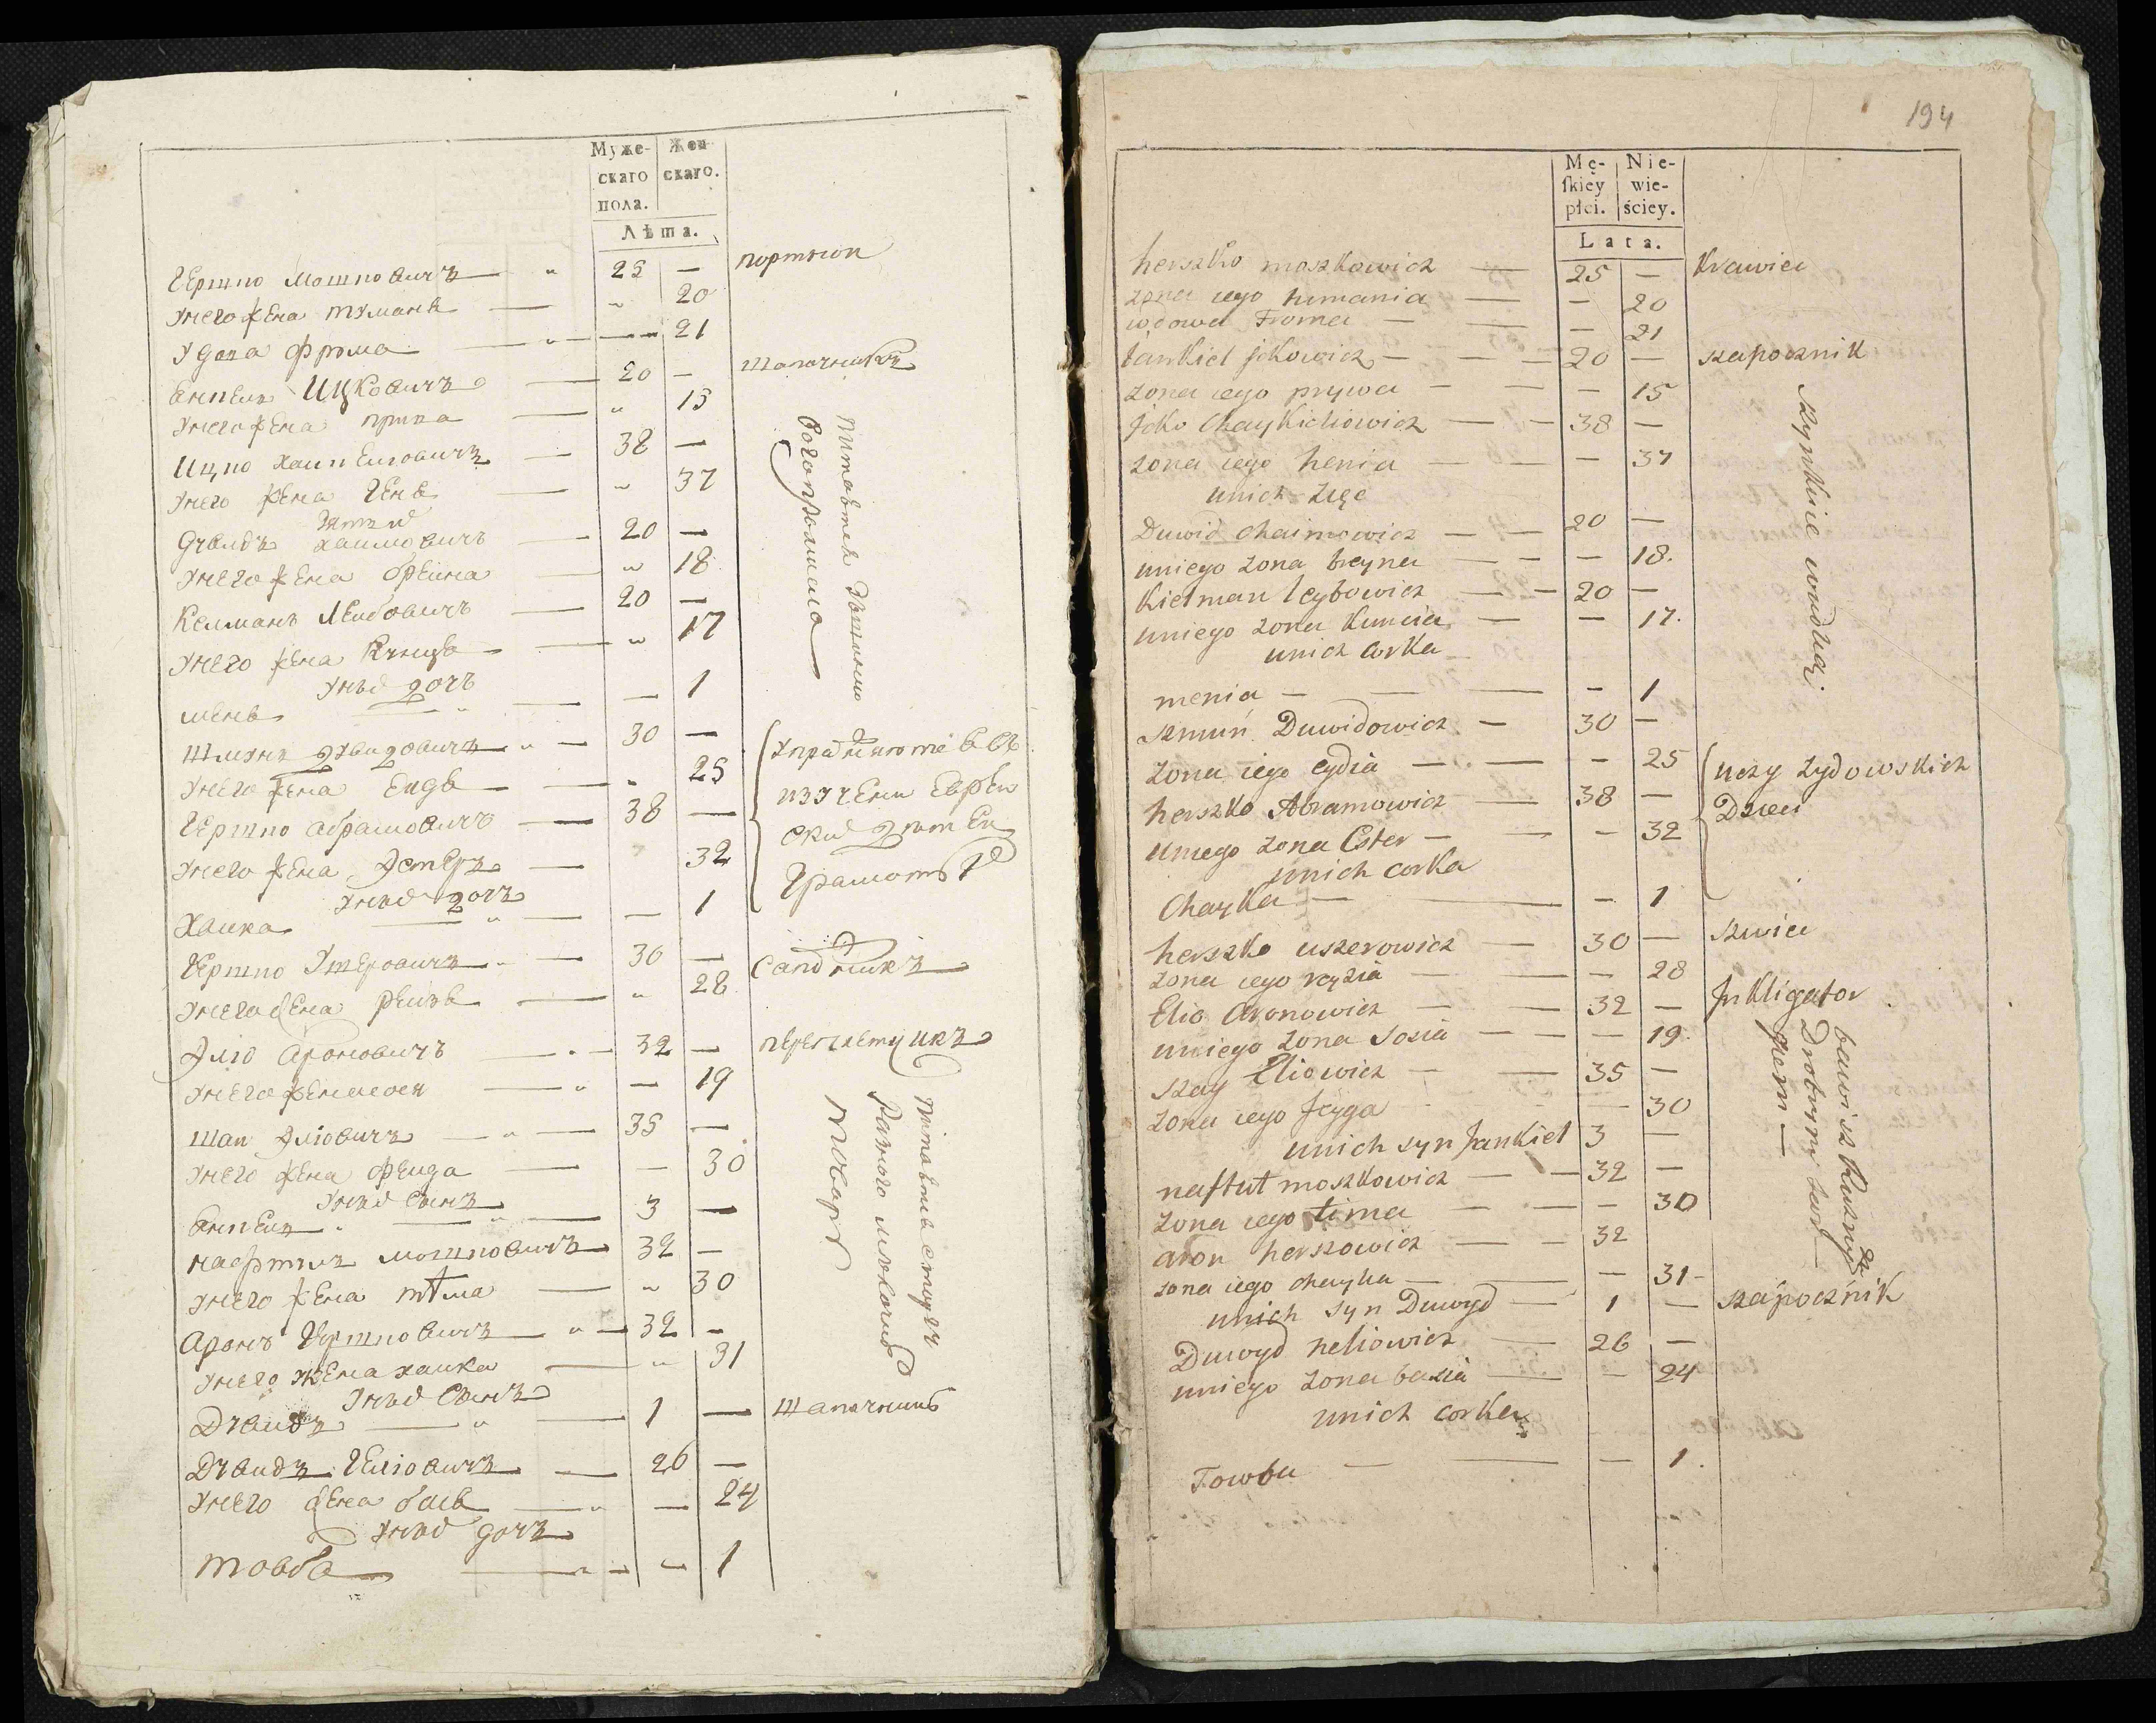 Муже-
скаго
пола.
Жен-
скаго.
Лѣта.
Гершко Мошковичъ — „ 25 — портной
Унего жена тумань — „ 20
Удова фрома — „ — 21
Янкель Ицковичъ — 20 — шапочникъ
Унего жена прива — „ 15
Ицко Хайкеловичъ — 38 —
Унего жена Геня — „ 37
Зять
Дувидъ Хаимовичъ — 20 —
Унего жена брейна — „ 18
Келманъ Лейбовичъ — 20 —
Унего жена Кунця — „ 17
Унихъ дочь
меня — „ — — 1
Шмунъ Дувидовичъ „ — 30 —
Унего жена Ейдя — „ 25
Гершко Абрамовичъ — 38 —
Унего жена Эстеръ — 32
Унихъ дочь
Хайка — „ — — 1
Гершко Ушеровичъ „ — 30 —
Унего жена Рейзя — „ 28
Эліо Ароновичъ — „ — 32 —
Унего жена сося — „ — 19
Шая Эліовичъ — „ — 35 —
Унего жена фейга — — 30
Унихъ сынъ
Янкель „ — „ — 3 —
нафтулъ мошковичъ — 32 —
Унего жена тѣма — „ 30
Аронъ Гершковичъ — „ — 32 —
Унего жена хайка — „ 31
Унихъ сынъ
Дувидъ — „ — 1 —
Дувидъ Геліовичъ — 26 —
Унего жена бася — „ — 24
Унихъ дочь
товба — „ — „ 1
упражняются въ
изученіи еврей
скихъ дѣтей
грамотѣ
сапожникъ
переплетчикъ
разного мѣлочнаго
товару
шапочникъ
194
Mę-
skiey
płci.
Nie-
wie-
ściey.
Lata.
herszko moszkowicz — 25 — Krawiec
zona iego tumania — — 20
wdowa Froma — — — 21
Jankiel Jckowicz — — — 20 — szapocznik
zona iego prywa — — — 15
Jcko Chaykielowicz — — 38 —
zona iego henia — — — 37
unich zięc
Duwid Chaimowicz — — 20 —
uniego zona breyna — — — 18.
Kielman leybowicz — — 20 —
uniego zona Kuncia — — 17.
unich corka
menia — — — — 1
szmuń Duwidowicz — 30 —
zona iego eydia — — — 25
herszko Abramowicz — 38 —
uniego zona Ester — — — 32
unich corka
Chayka — — — 1
herszko uszerowicz — 30 — szwiec
zona iego reyzia — — — 28
Elio Aronowicz — — 32 — Jnkligator
uniego zona sosia — — — 19.
szay Eliowicz — — 35 —
zona iego feyga — — 30
unich syn Jankiel 3 —
naftuł moszkowicz — — 32 —
zona iego tima — — — 30
aron herszowicz — — 32
zona iego chayka — — — 31 —
unich syn Duwyd — 1 — szapocznik
Duwyd heliowicz — 26 —
uniego zona basia — — 24
unich corka
Towba — — — 1.
szynkuie wudką.
uczy zydowskich
Dzieci
bawi sz Raznym
Drobnym towa-
rem —